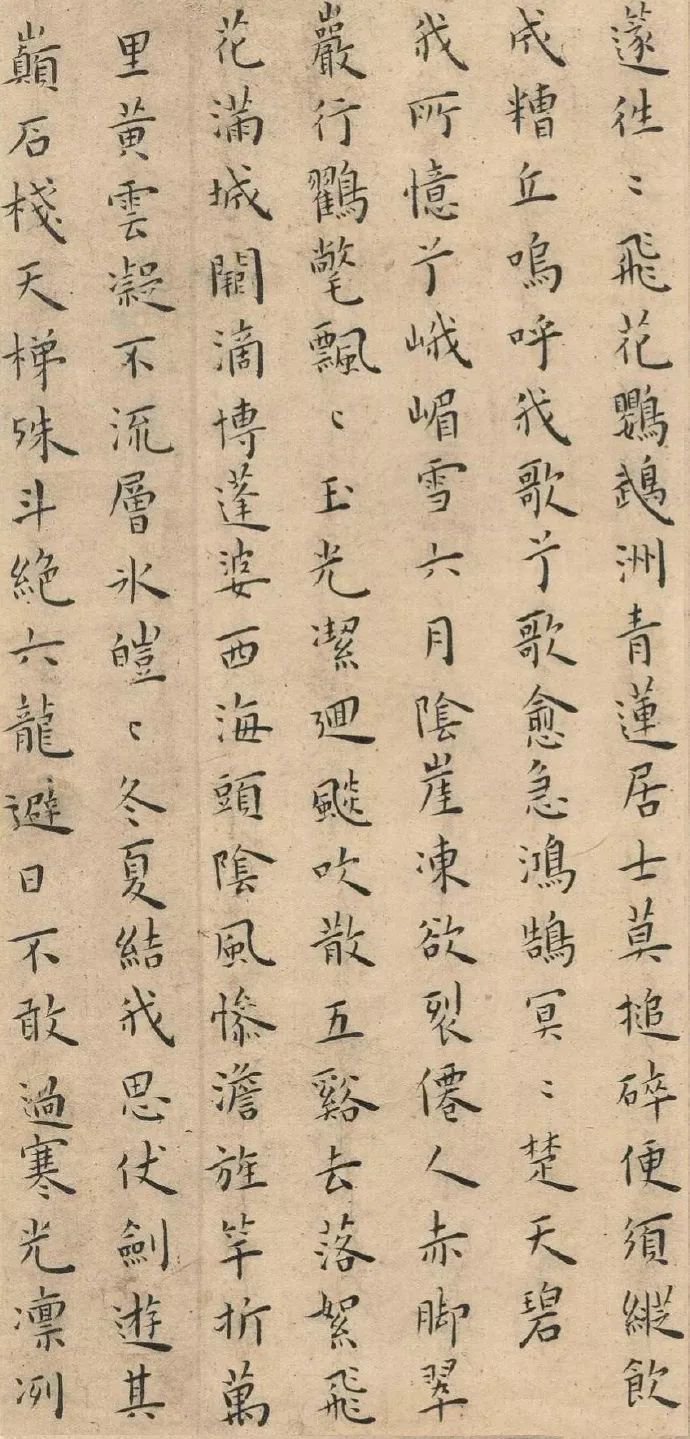 篴往〻飛花鸚鵡洲青蓮居士莫搥碎便須縱飲
成糟丘嗚呼我歌兮歌愈急鴻鵠冥〻楚天碧
我所憶兮峨嵋雪六月陰崖凍欲裂僊人赤脚翠
巖行鸛氅飄〻玉光潔迴飈吹散五谿去落絮飛
花滿城闕滴博蓬婆西海頭陰風慘澹旌竿折萬
里黃雲凝不流層氷皚〻冬夏結我思伏劍遊其
巔石棧天梯殊斗絕六龍避日不敢過寒光凛冽